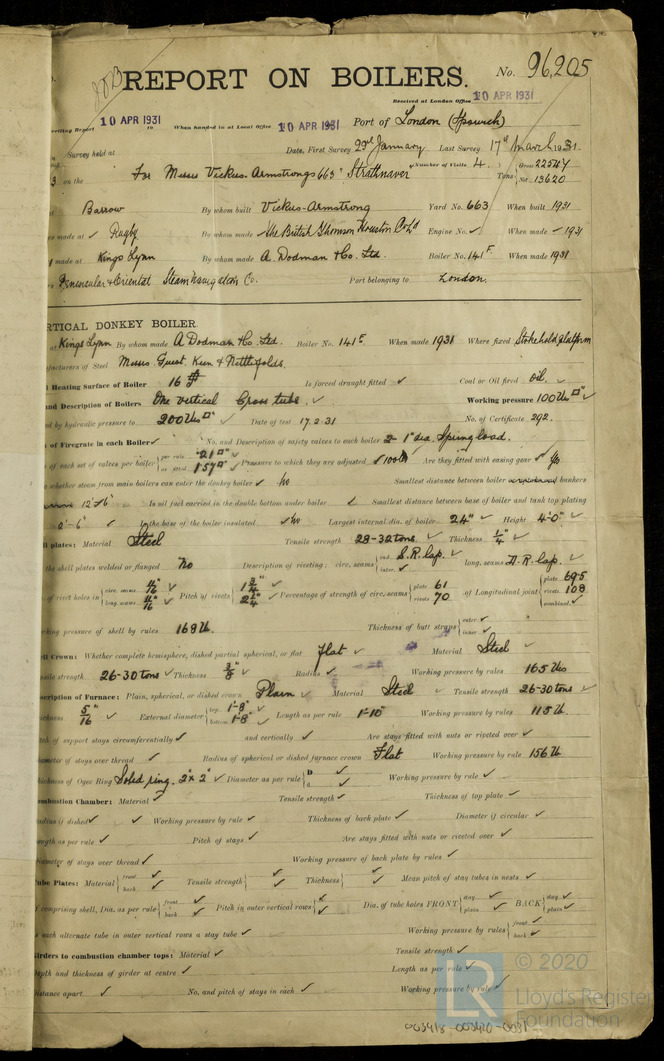 REPORT ON BOILERS. No. 96,205
Received at London Office 10 APR 1931
writing Report 10 APR 1931 When handed in at Local Office 10 APR 1931 Port of London (Ipswich)
Survey held at Date, First Survey 29th January Last Survey 17th March 1931
on the For Messrs Vickers-Armstrongs 663 "Strathnaver" Number of Visits 4 Gross 22547
Tons Net 13620
Barrow By whom built Vickers-Armstrong Yard No. 663 When built 1931
made at Rugby By whom made The British Thomson Houston Co Ltd Engine No. When made 1931
made at Kings Lynn By whom made A. Dodman & Co. Ltd. Boiler No. 141F When made 1931
Peninsular & Oriental Steam Navigation Co. Port belonging to London.
VERTICAL DONKEY BOILER
at Kings Lynn By whom made A Dodman & Co. Ltd. Boiler No. 141F When made 1931 Where fixed Stokehold platform
facturers of Steel Messrs. Guest. Keen & Nettlefolds.
Heating Surface of Boiler 16 Is forced draught fitted Coal or Oil fired oil.
and Description of Boilers One vertical Cross tube. Working pressure 100 lbs □"
by hydraulic pressure to 200 lbs □" Date of test 17.2.31 No. of Certificate 292.
of Firegrate in each Boiler No. and Description of safety valves to each boiler 2 - 1" dia. Spring load.
of each set of valves per boiler { per rule .21 □" as fitted 1.57 □" Pressure to which they are adjusted 100 lb Are they fitted with easing gear yes
whether steam from main boilers can enter the donkey boiler no Smallest distance between boiler or uptake and bunkers
12'-6" Is oil fuel carried in the double bottom under boiler Smallest distance between base of boiler and tank top plating
2'-6" Is the base of the boiler insulated no Largest internal dia. of boiler 24" Height 4'-0"
plates: Material Steel Tensile strength 28-32 tons Thickness 1/4"
the shell plates welded or flanged No Description of riveting: circ. seams { end S.R. lap. inter. long. seams D.R. lap.
of rivet holes in { circ. seams 11/16" long. seams 11/16" Pitch of rivets { 1 3/4" 2 1/4" Percentage of strength of circ. seams { plate 61 rivets 70 of Longitudinal joint { plate 69.5 rivets 108 combined
king pressure of shell by rules 168 lb. Thickness of butt straps { outer inner
Crown: Whether complete hemisphere, dished partial spherical, or flat Flat Material Steel
strength 26-30 tons Thickness 3/8" Radius Working pressure by rules 165 lbs
scription of Furnace: Plain, spherical, or dished crown Plain Material Steel Tensile strength 26-30 tons
ickness 5/16" External diameter { top 1'-8" bottom 1'-8" Length as per rule 1'-10" Working pressure by rules 115 lb
of support stays circumferentially and vertically Are stays fitted with nuts or riveted over
ameter of stays over thread Radius of spherical or dished furnace crown Flat Working pressure by rule 156 lb
hickness of Ogee Ring Solid ring. 2" x 2" Diameter as per rule { D d Working pressure by rule
ombustion Chamber: Material Tensile strength Thickness of top plate
Radius if dished Working pressure by rule Thickness of back plate Diameter if circular
ength as per rule Pitch of stays Are stays fitted with nuts or riveted over
Diameter of stays over thread Working pressure of back plate by rules
Tube Plates: Material { front back Tensile strength { Thickness { Mean pitch of stay tubes in nests
comprising shell, Dia. as per rule { front back Pitch in outer vertical rows { Dia. of tube holes FRONT { stay plain BACK { stay plain
each alternate tube in outer vertical rows a stay tube Working pressure by rules { front back
Girders to combustion chamber tops: Material Tensile strength
Depth and thickness of girder at centre Length as per rule
Distance apart No. and pitch of stays in each Working pressure by rule
LR © 2020
Lloyd's Register
Foundation
003418-003420-0031